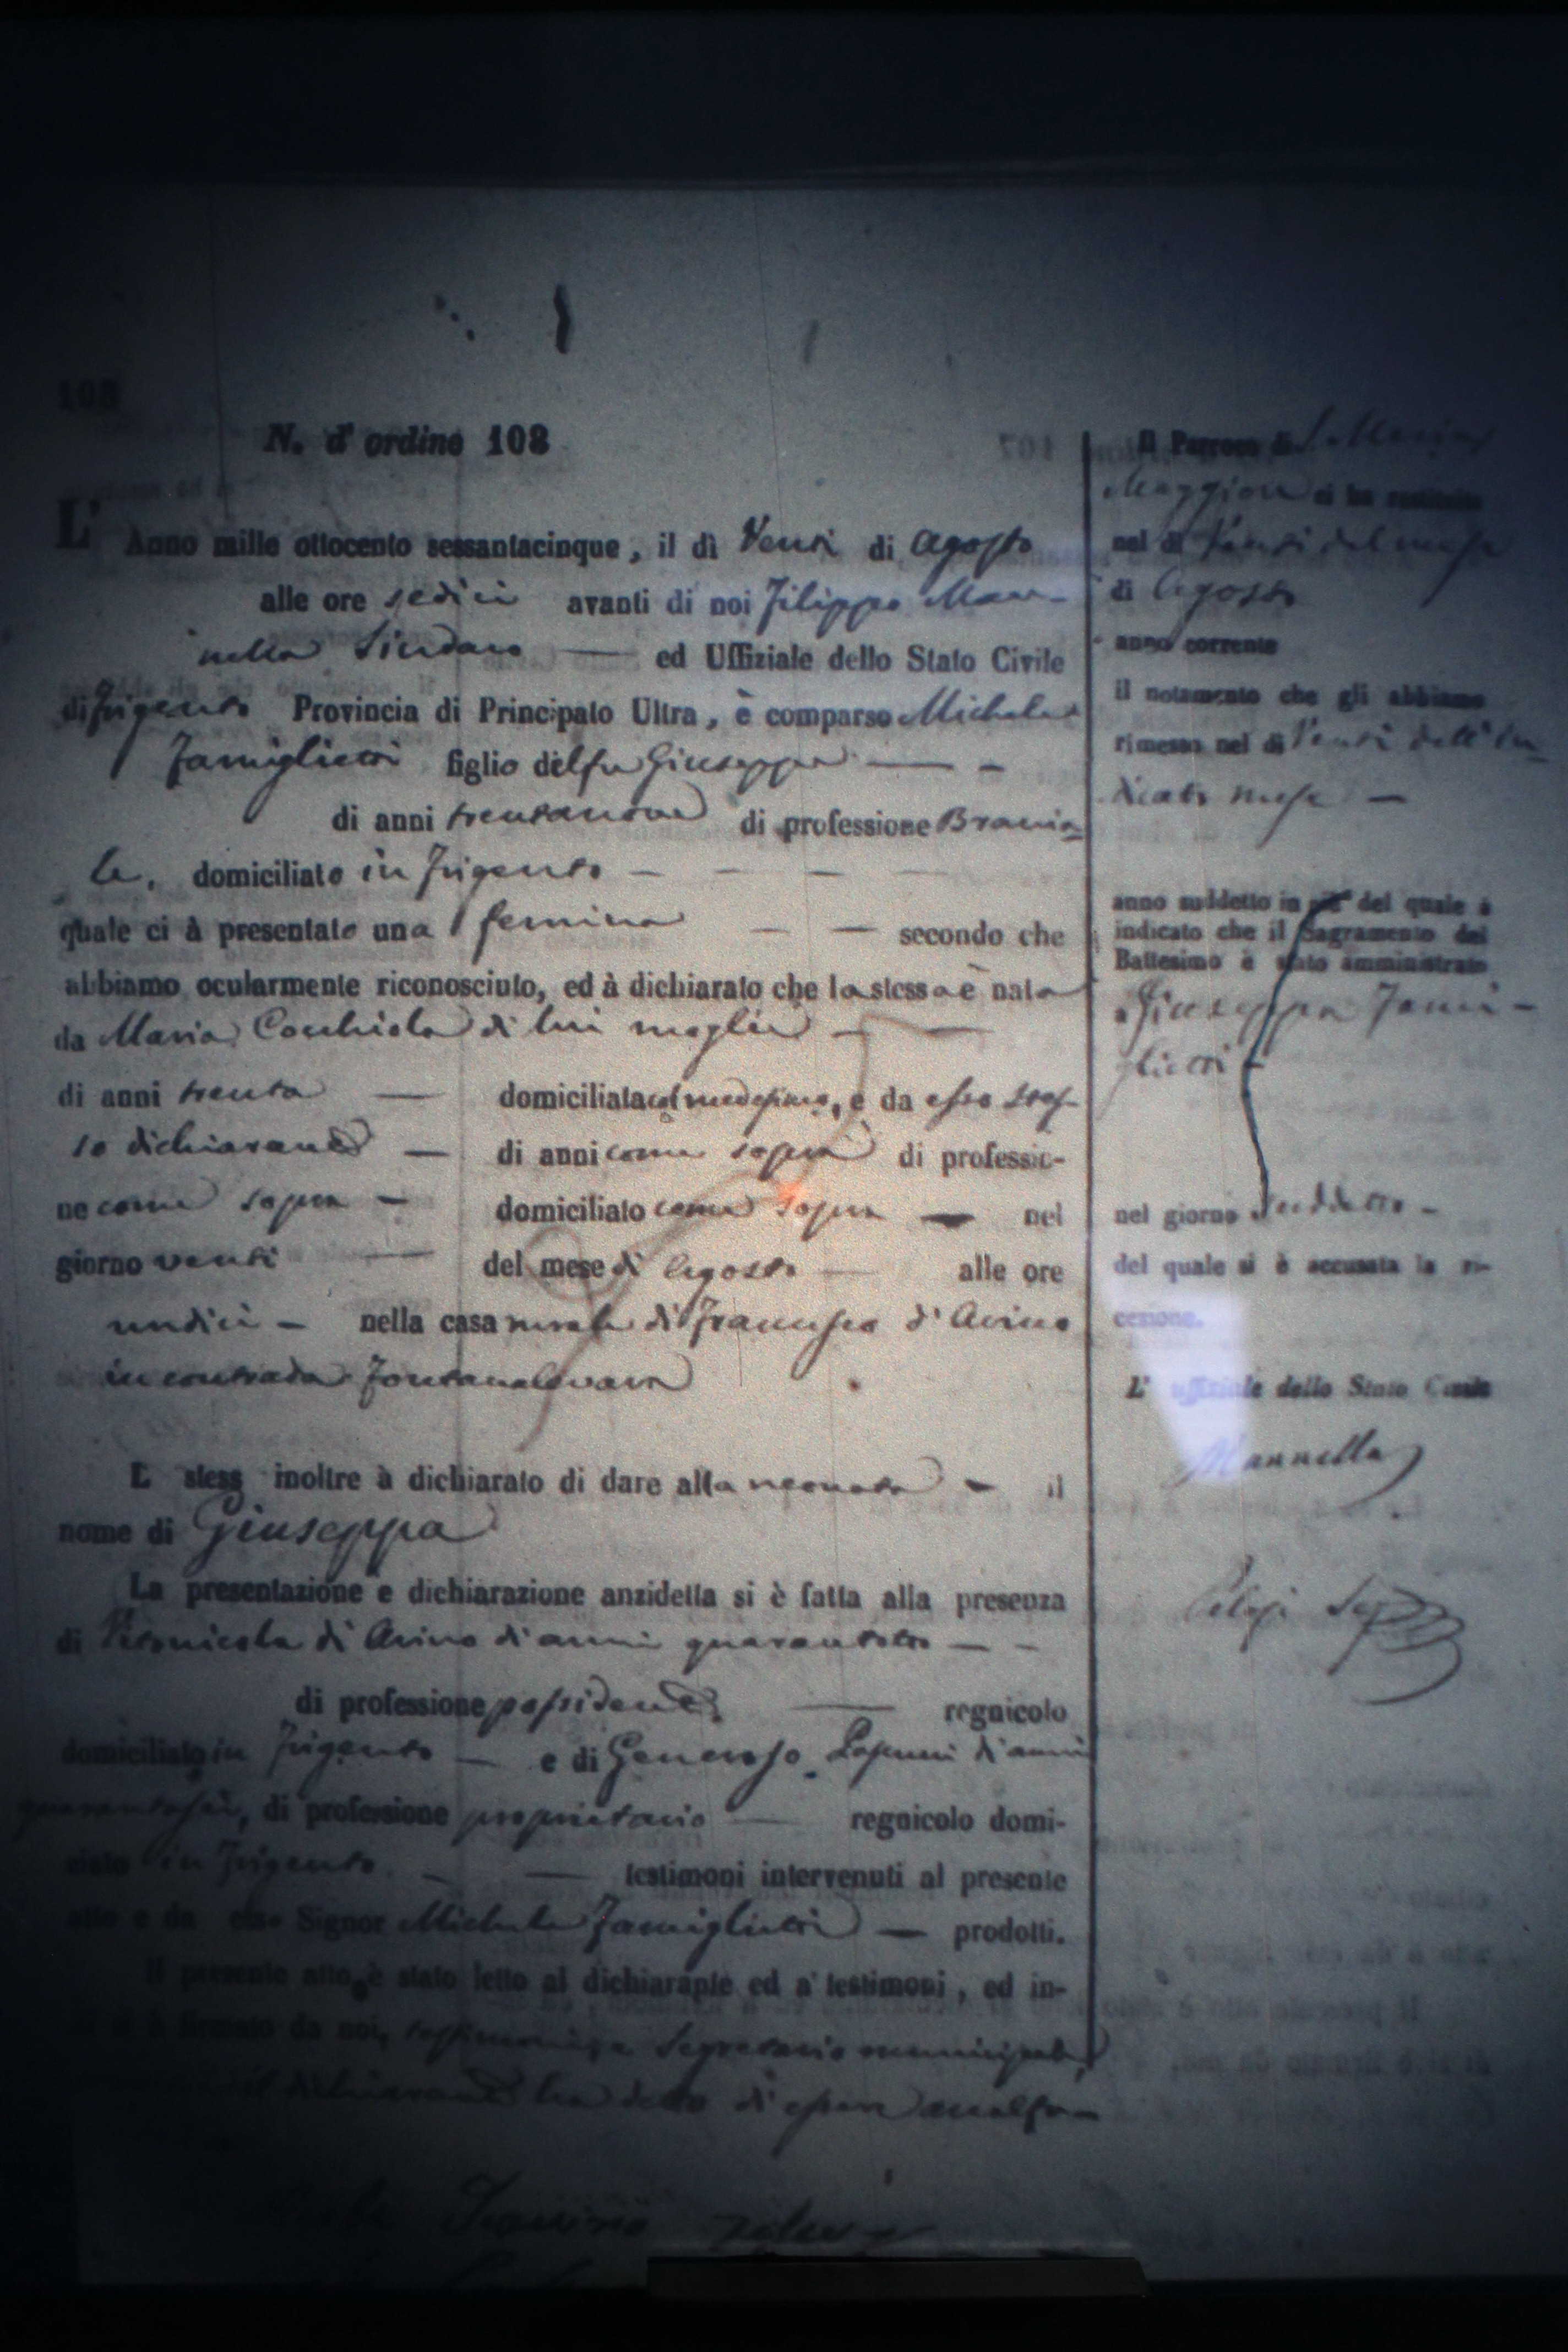 108
N. d' ordine 108
L' Anno mille ottocento sessantacinque, il dì Venti di Agosto
alle ore sedici avanti di noi Filippo Man-
nella Sindaco — ed Uffiziale dello Stato Civile
di Frigento Provincia di Principato Ultra, è comparso Michele
Famiglietti figlio del fu Giuseppe — –
di anni trentanove di professione Braccia-
le, domiciliato in Frigento – – –
quale ci à presentato una femina – — secondo che
abbiamo ocularmente riconosciuto, ed à dichiarato che la stessa è nata
da Maria di lui moglie — —
di anni trenta — domiciliata col medesimo, e da esso stes-
so dichiarante — di anni come sopra di professio-
ne come sopra – domiciliato come sopra — nel
giorno venti — del mese di Agosto — alle ore
undici – nella casa rurale di Francesco d'Avino
in contrada
L stess inoltre à dichiarato di dare alla neonata – il
nome di Giuseppa
La presentazione e dichiarazione anzidetta si è fatta alla presenza
di di Avino di anni — –
di professione possidente — regnicolo
domiciliato in Frigento — e di Generoso di anni
di professione proprietario — regnicolo domi-
ciato in Frigento – — testimoni intervenuti al presente
atto e da esso Signor Michele Famiglietti — prodotti.
Il presente atto è stato letto al dichiarante ed a' testimoni, ed in-
di si è firmato da noi, Segretario municipale,
il dichiarante ha detto di essere analfa-
Il Parroco di S. Maria
Maggiore ci ha restituito
nel dì Venti del mese
di Agosto
anno corrente
il notamento che gli abbiamo
rimesso nel dì Venti dell' in-
dicato mese —
anno suddetto in piè del quale è
indicato che il Sagramento del
Battesimo è stato amministrato
a Giuseppa Fami-
glietti –
nel giorno suddetto –
del quale si è accusata la ri-
cezione.
L' uffiziale dello Stato Civile
Mannella